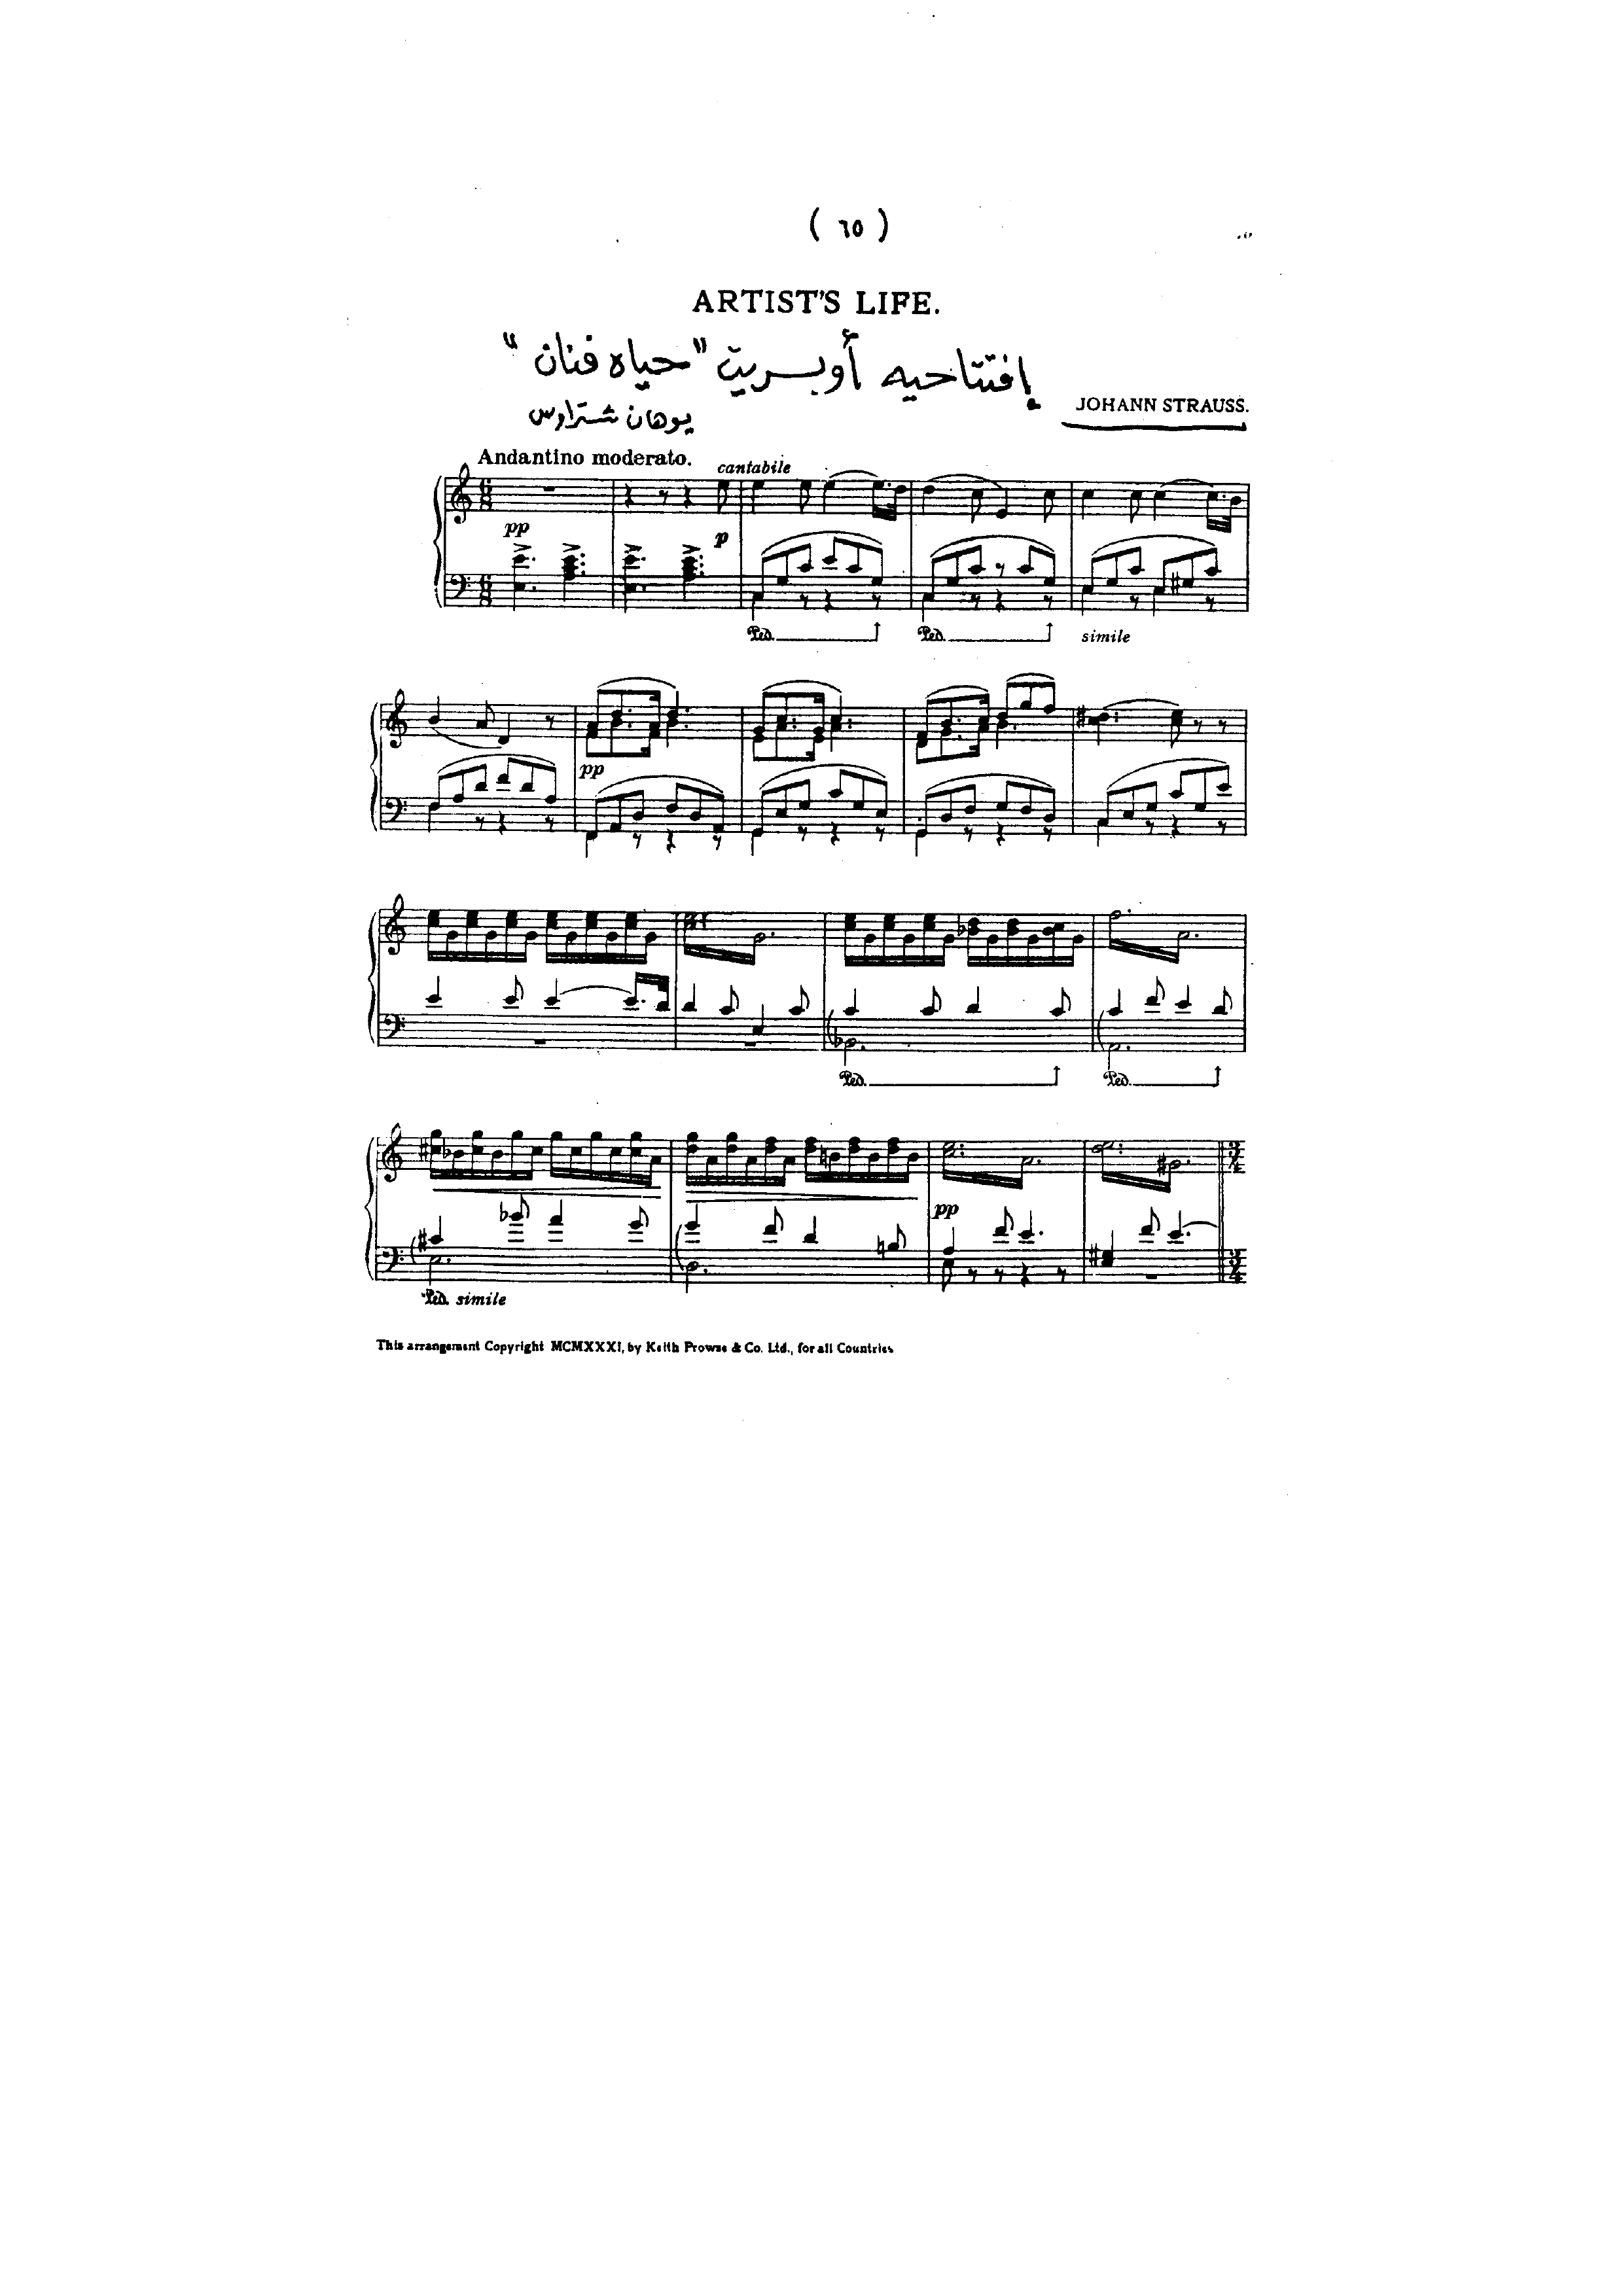 ( ٦٥ )
ARTIST'S LIFE.
إفتتاحيه أوبريت "حياه فنان"
JOHANN STRAUSS.
يوهان شتراوس
Andantino moderato.
cantabile
pp
p
Ped. Ped. simile
pp
Ped. Ped.
pp
Ped. simile
This arrangement Copyright MCMXXXI, by Keith Prowse & Co. Ltd., for all Countries